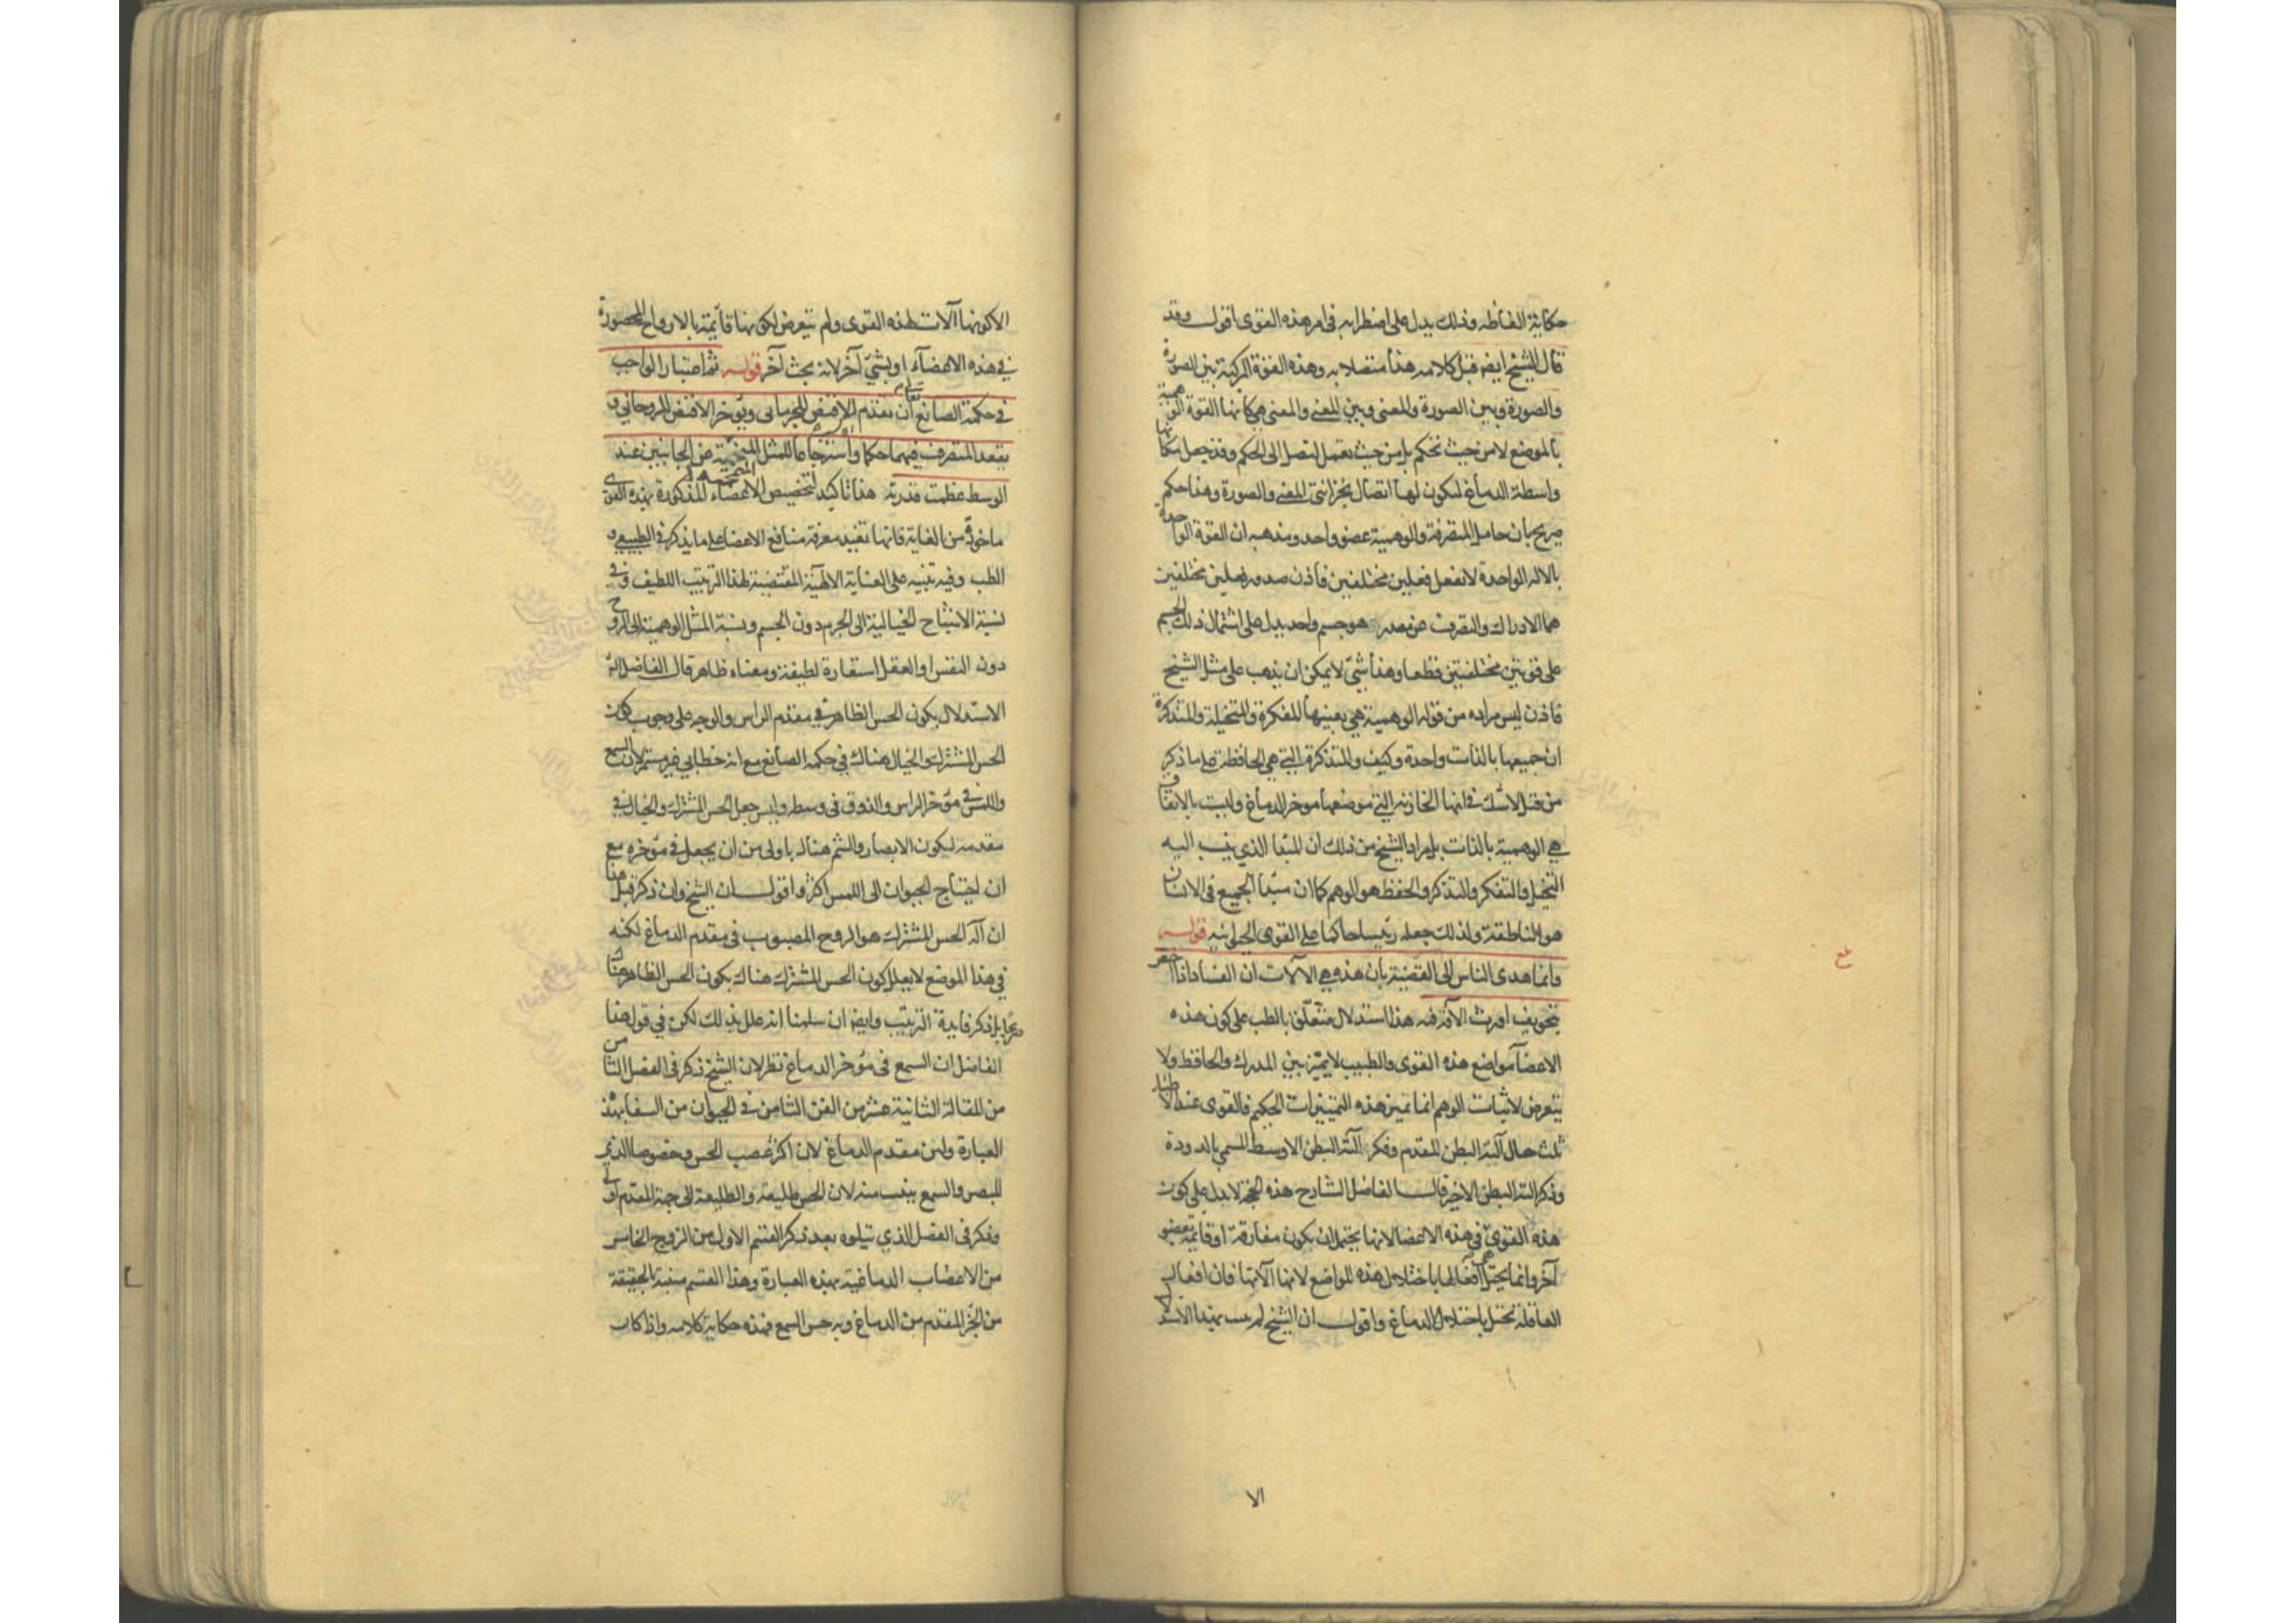 حكاية الفاظه وذلك يدل على اضطرابه فى امر هذه القوى اقول وقد
قال الشيخ ايضه قبل كلامه هذا متصلا به وهذه القوة المركبة بين الصورة
والصورة وبين الصورة والمعنى وبين المعنى والمعنى هى كانها القوة الوهمية
بالموضع لا من حيث تحكم بل من حيث تعمل لتصل الى الحكم وقد جعل مكانها
واسطة الدماغ ليكون لها اتصال بخزانتى المعنى والصورة وهذا حكم
صريح بان حامل المتصرفة والوهمية عضو واحد ومذهبه ان القوة الواحدة
بالآلة الواحدة لا تفعل فعلين مختلفين فاذن صدور فعلين مختلفين
هما الادراك والتصرف عن مصدر هو جسم واحد يدل على اشتمال ذلك الجسم
على قوتين مختلفتين قطعا وهذا شئ لا يمكن ان يذهب على مثل الشيخ
فاذن ليس مراده من قوله الوهمية هي بعينها المفكرة والمتخيلة والمتذكرة
ان جميعها بالذات واحدة وكيف والمتذكرة التي هي الحافظة على ما ذكر
من قبل لا شك فى انها الخازنه التي موضعها موخر الدماغ وليست بالاتفاق
هي الوهمية بالذات بل مراد الشيخ من ذلك ان المبدا الذي ينسب اليه
التخيل والتفكر والتذكر والحفظ هو الوهم كما ان مبدا الجميع فى الانسان
هو الناطقة ولذلك جعله رئيسا حاكما على القوى الحيوانيه قوله
وانما هدى الناس الى القضية بان هذه هي الآلات ان الفساد اذا اختص
بتجويف اورث الآفة فيه هذا استدلال متعلق بالطب على كون هذه
الاعضا مواضع هذه القوى والطبيب لا يميز بين المدرك والحافظ ولا
يتعرض لاثبات الوهم انما تميز هذه التمييزات الحكيم فالقوى عند الاطبا
ثلث خيال آلته البطن المقدم وفكر آلته البطن الاوسط المسمى بالدودة
وذكر آلته البطن الاخير قال الفاضل الشارح هذه الحجة لا يدل على كون
هذه القوى فى هذه الاعضا لانها يحتمل ان يكون مفارقة او قائمة بعضو
آخر وانما يختل افعالها باختلال هذه المواضع لانها آلاتها فان افعال
العاقلة تختل باختلال الدماغ واقول ان الشيخ لم يثبت بهذا الاستدلال
الا
الا كونها آلات لهذه القوى ولم يتعرض لكونها قائمة بالارواح المحصورة
في هذه الاعضآء او بشئ آخر لانه بحث آخر قوله ثم اعتبار الواجب
فى حكمة الصانع تعالى ان تقدم الاقنص للجرمانى ويؤخر الاقنص للروحاني و
يقعد المتصرف فيهما حكما واسترجاعا للمثل المنمحية عن الجانبين عند
الوسط عظمت قدرته هذا تاكيد لتخصيص الاعضاء المذكورة بهذه القوى
ماخوذ من الغاية فانها تفيد معرفة منافع الاعضا على ما يذكر فى الطبيعي و
الطب وفيه تنبيه على العناية الالهية المقتضية لهذا الترتيب اللطيف وفى
نسبة الاشباح الخيالية الى الجرم دون الجسم ونسبة المثل الوهمية الى الروح
دون النفس او العقل استعارة لطيفة ومعناه ظاهر قال الفاضل الشارح
الاستدلال بكون الحس الظاهر فى مقدم الراس والوجه على وجوب كون
الحس المشترك والخيال هناك فى حكمة الصانع مع انه خطابى غير مستمر لان السمع
واللمس فى مؤخر الراس والذوق فى وسطه وليس جعل الحس المشترك والخيال فى
مقدمه ليكون الابصار والشم هناك باولى من ان يجعل فى مؤخره مع
ان احتياج الحيوان الى اللمس اكثر واقول ان الشيخ وان ذكر قبل هذا
ان آلة الحس المشترك هو الروح المصبوب فى مقدم الدماغ لكنه
في هذا الموضع لا يعلل كون الحس المشترك هناك بكون الحس الظاهر هناك
صريحا بل ذكر فايدة الترتيب وايضه ان سلمنا انه علل بذلك لكن في قول هذا
الفاضل ان السمع فى مؤخر الدماغ نظر لان الشيخ ذكر فى الفصل الثامن
من المقالة الثانية عشر من الفن الثامن في الحيوان من الشفا بهذه
العبارة ولين مقدم الدماغ لان اكثر عصب الحس وخصوصا الذي
للبصر والسمع ينبت منه لان الحس طليعة والطليعة الى جهة المقدم اولى
وذكر فى الفصل الذي يتلوه بعد ذكر القسم الاول من الزوج الخامس
من الاعصاب الدماغية بهذه العبارة وهذا القسم منبته بالحقيقة
من الجزء المقدم من الدماغ وبه حس السمع فهذه حكاية كلامه واذا كان